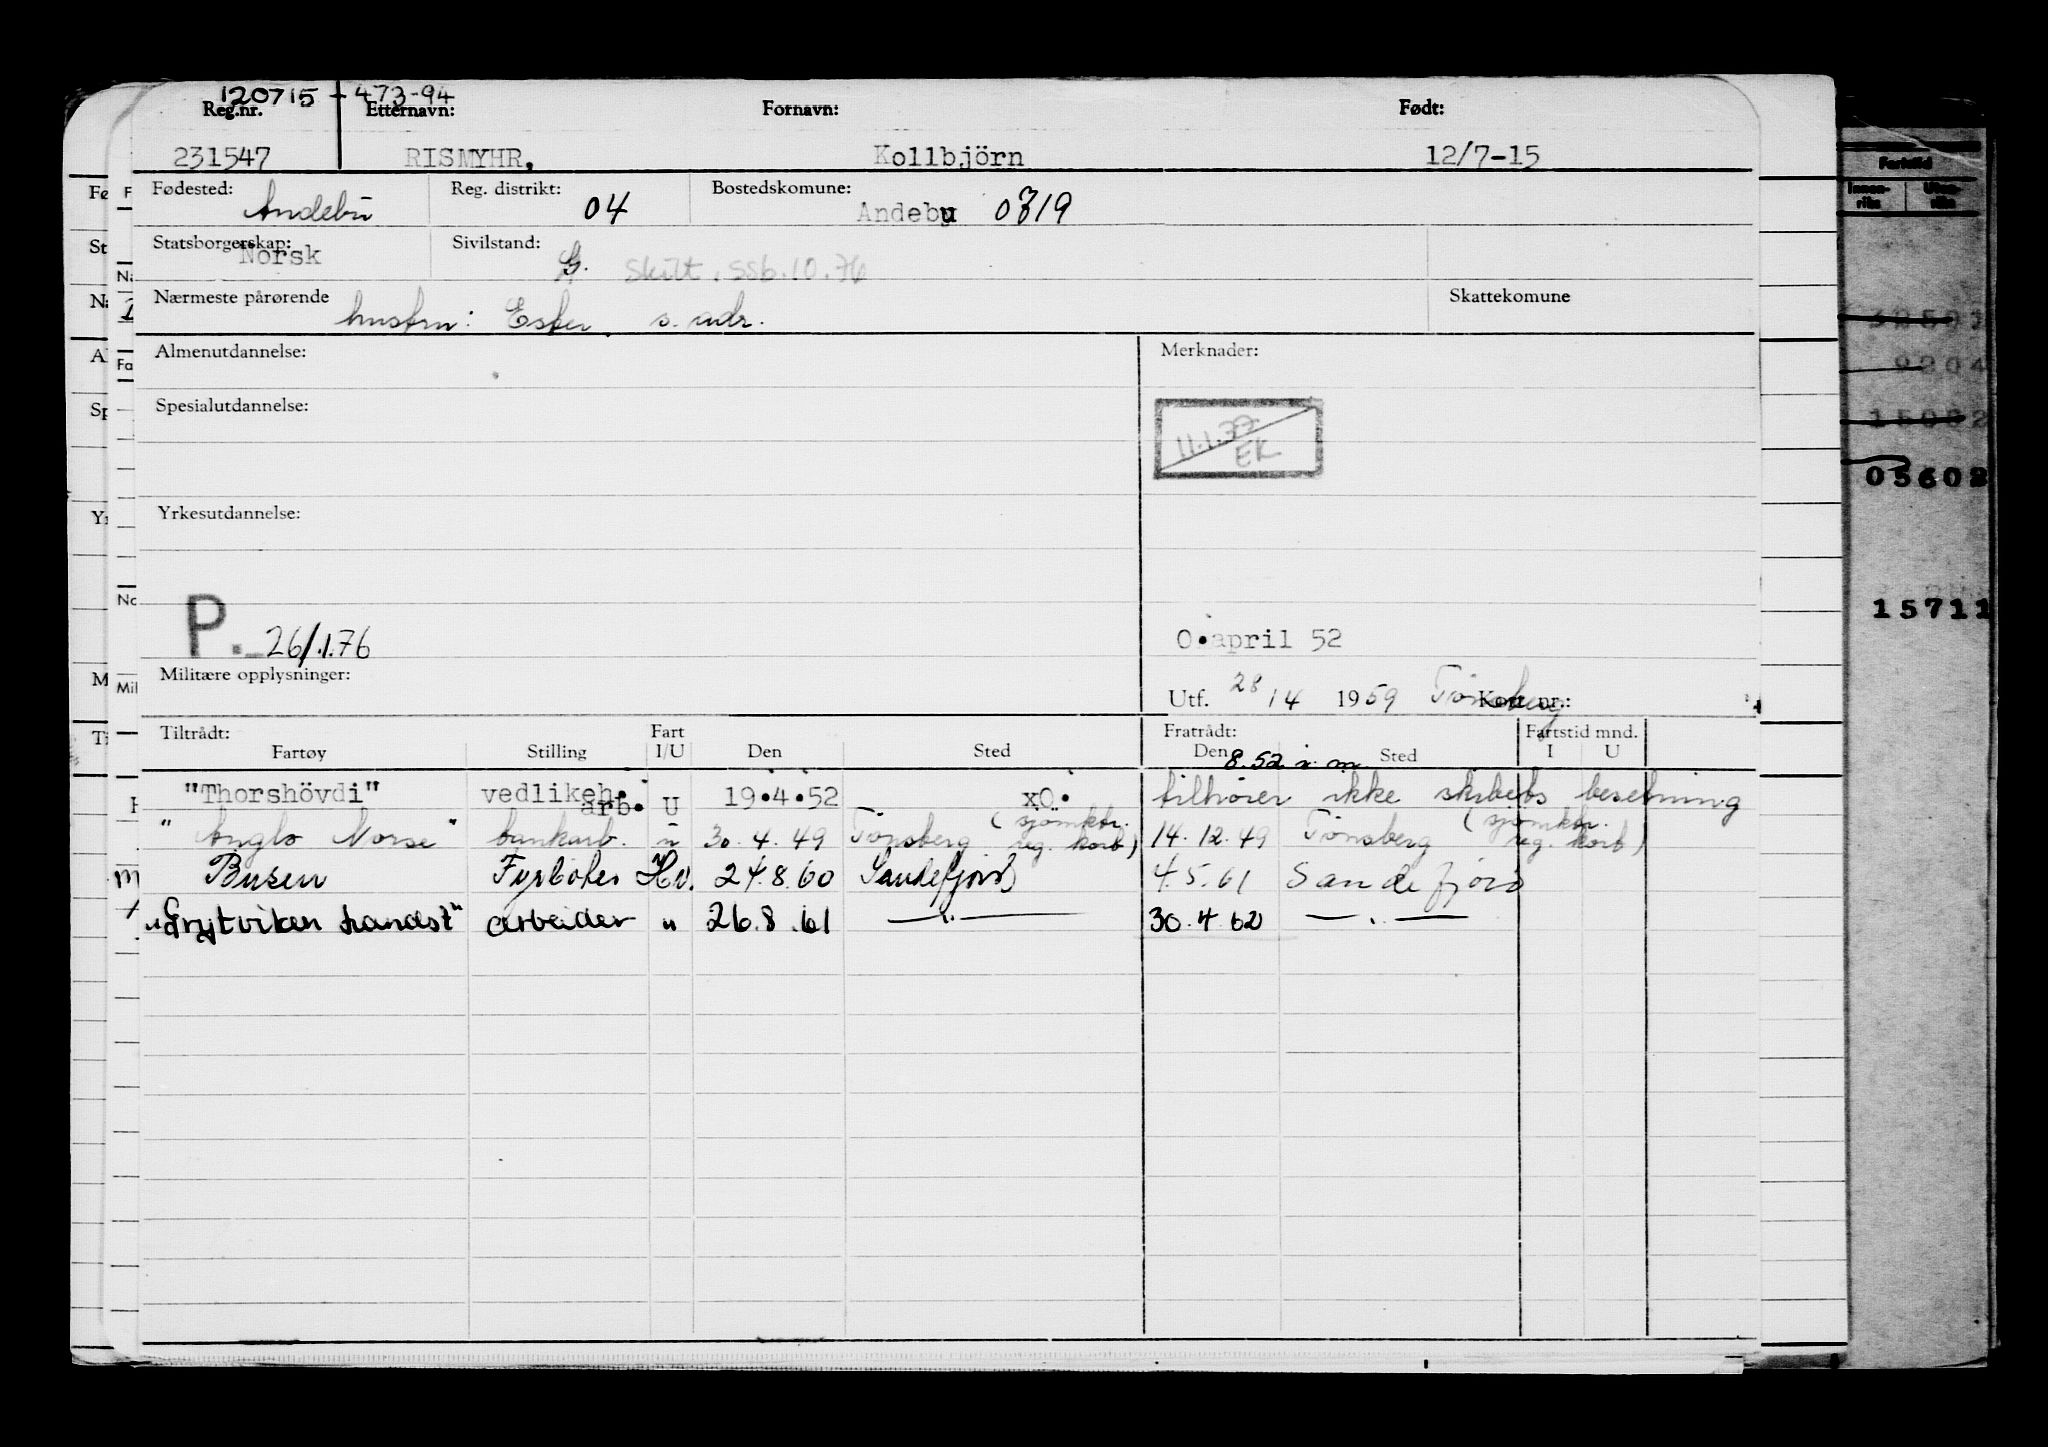 120715 - 473-94
Reg.nr. Etternavn: Fornavn: Født:
231547 RISMYHR, Kollbjörn 12/7-15
Fødested: Andebu Reg. distrikt: 04 Bostedskomune: Andebu 0719
Statsborgerskap: Norsk Sivilstand: G. Skilt. SSb. 10. 76
Nærmeste pårørende hustru: Ester s. adr. Skattekomune
Almenutdannelse: Merknader:
Spesialutdannelse:
11.1.
EK
Yrkesutdannelse:
P. 26/1.76
O.april 52
Militære opplysninger:
Utf. 28/4 1959 Tönsberg Kort nr.:
Tiltrådt: Fart Fratrådt: Fartstid mnd.
Fartøy Stilling I/U Den Sted Den Sted I U
8.52 i. m
"Thorshövdi" vedlikeh. arb. U 19.4.52 xO. tilhører ikke skibets besetning
"Anglo Norse" tankarb. u 30.4.49 Tönsberg (sjömktr. reg. kort) 14.12.49 Tönsberg (sjömktr. reg. kort)
Busen Fyrböter Hv. 24.8.60 Sandefjord 4.5.61 Sandefjord
"Grytviken landst" arbeider " 26.8.61 — " — 30.4.62 — " —
Fartstid
Innen-riks Uten-riks
9204
15082
05602
15711